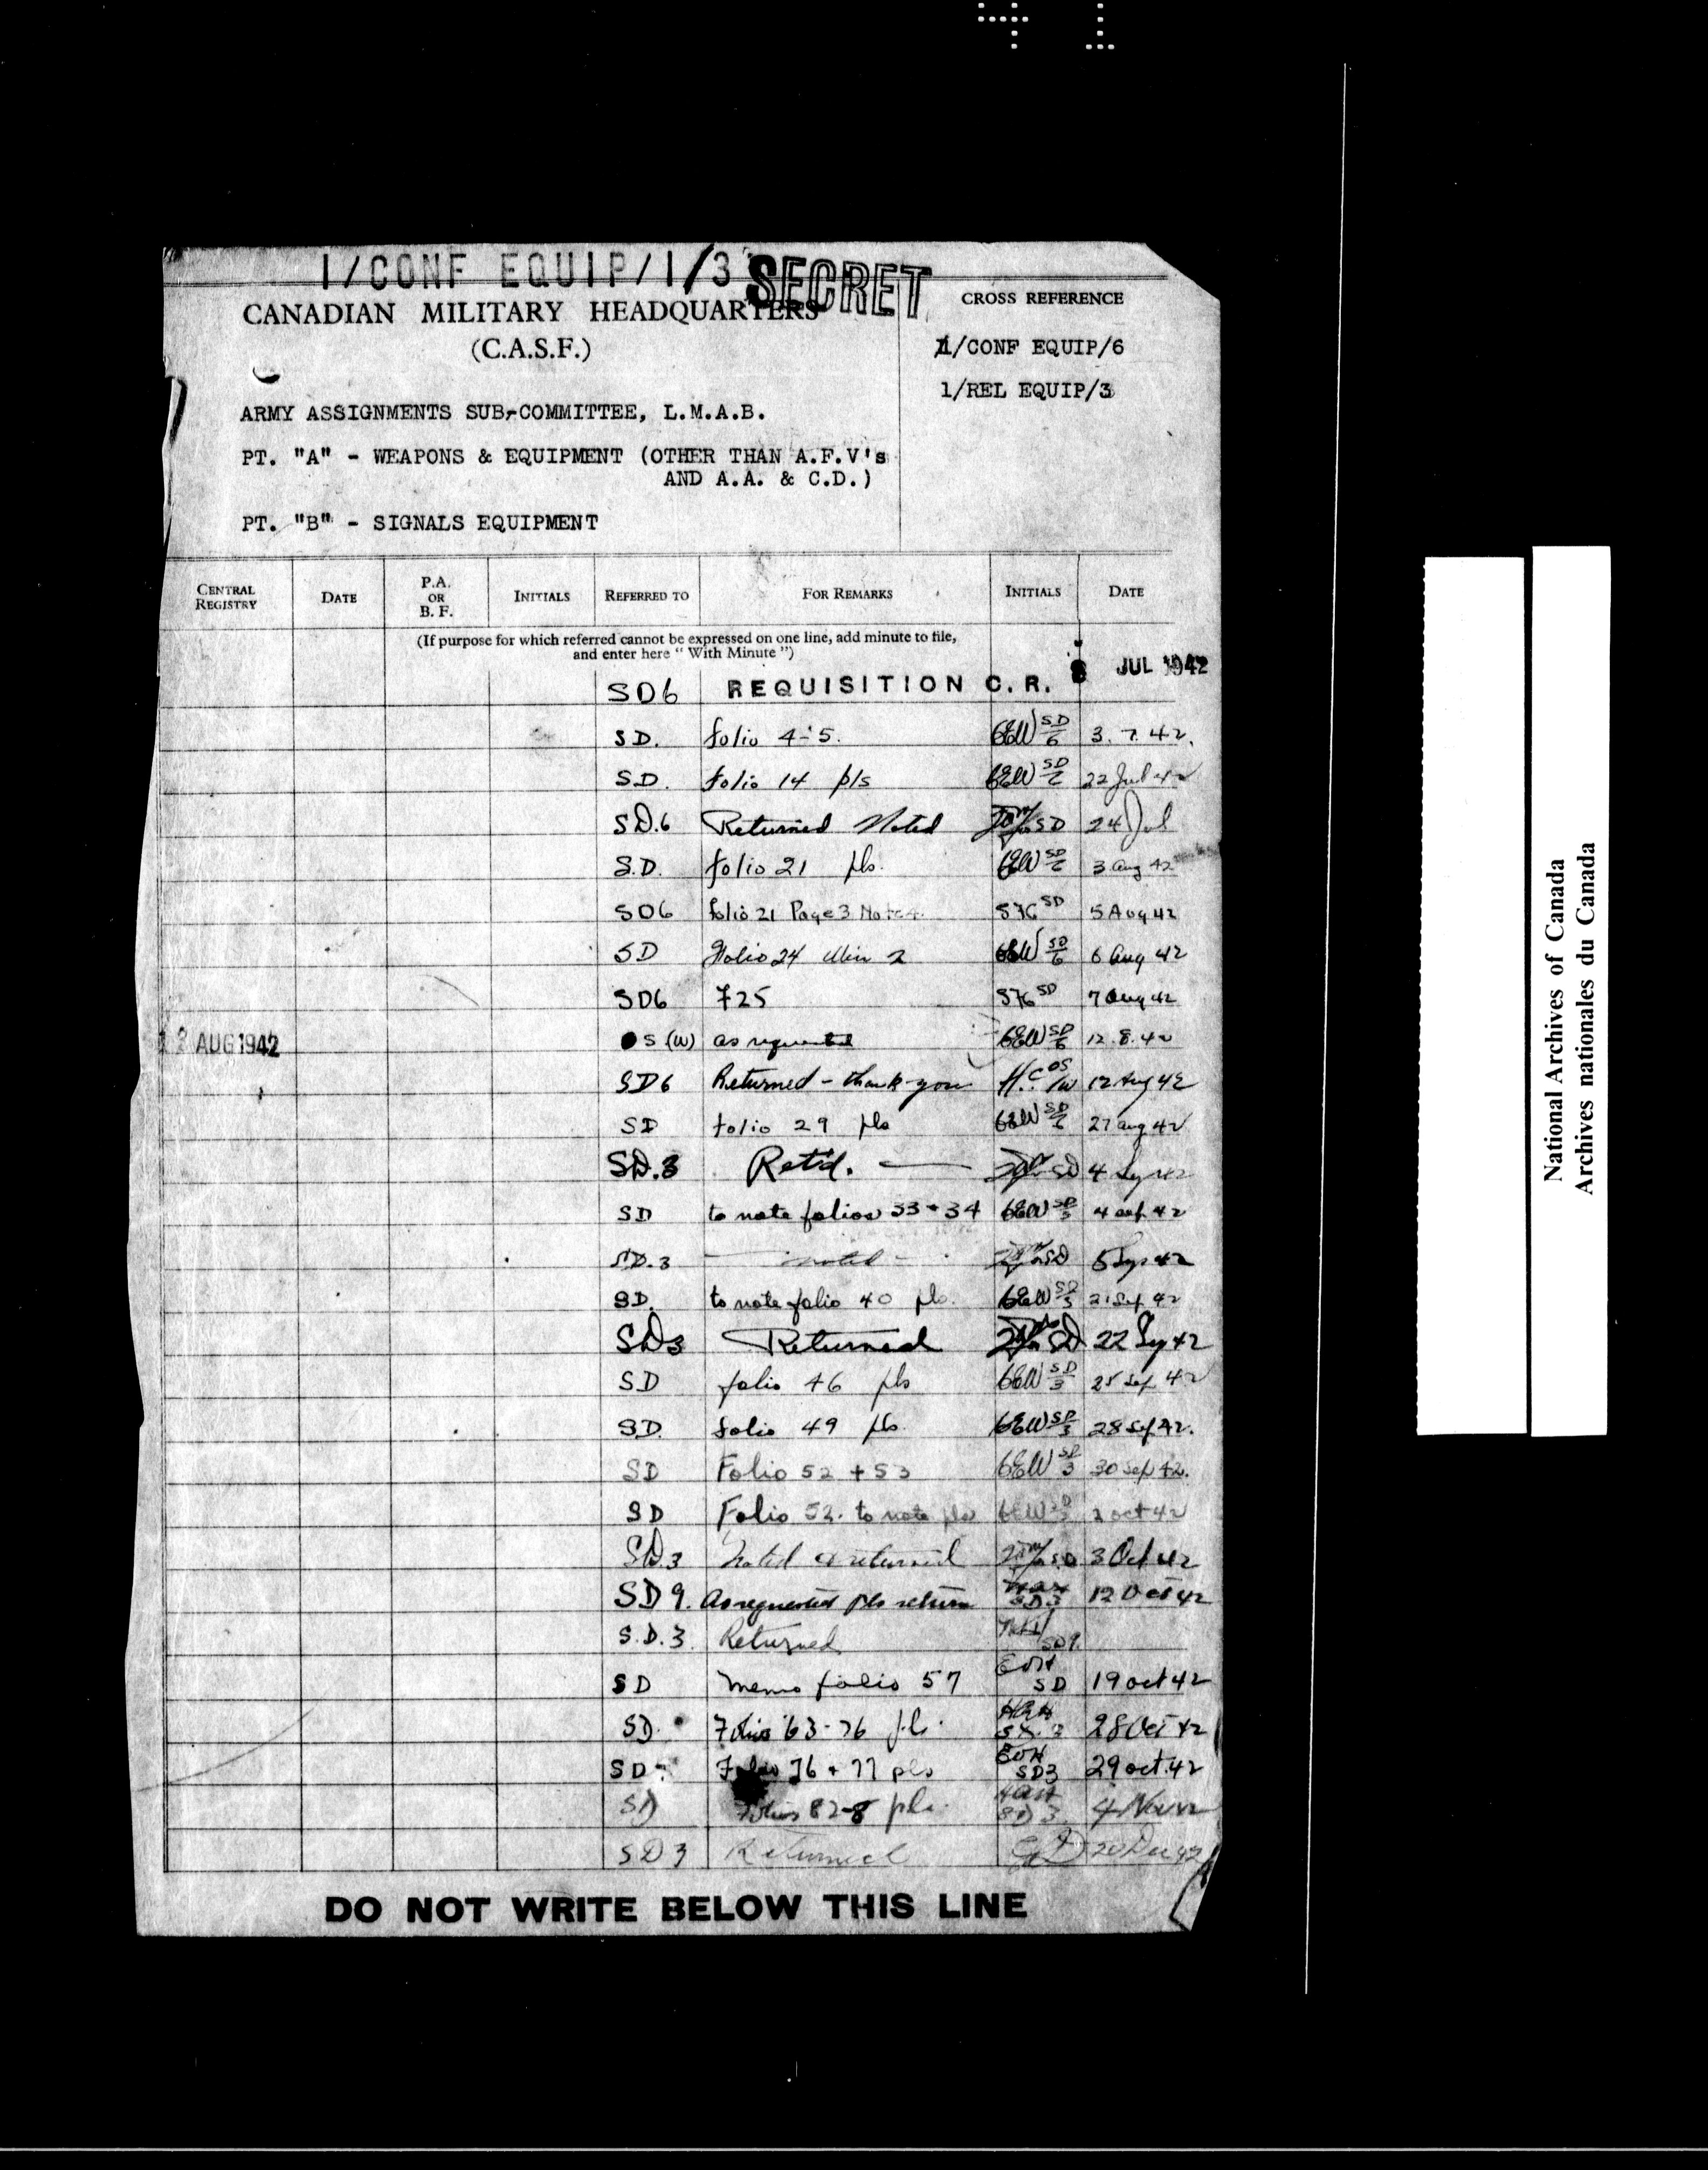 4 1
1/CONF EQUIP/1/3 SECRET
CANADIAN MILITARY HEADQUARTERS
(C.A.S.F.)
CROSS REFERENCE
1/CONF EQUIP/6
1/REL EQUIP/3
ARMY ASSIGNMENTS SUB-COMMITTEE, L.M.A.B.
PT. "A" - WEAPONS & EQUIPMENT (OTHER THAN A.F.V's
AND A.A. & C.D.)
PT. "B" - SIGNALS EQUIPMENT
CENTRAL REGISTRY DATE P.A. OR B.F. INITIALS REFERRED TO FOR REMARKS INITIALS DATE
(If purpose for which referred cannot be expressed on one line, add minute to file,
and enter here "With Minute")
SD6 REQUISITION C.R. 8 JUL 1942
SD. folio 4-5. GEW SD/6 3.7.42.
SD. folio 14 pls GEW SD/6 22 Jul 42
SD.6 Returned Noted SD 24 Jul
S.D. folio 21 pls. GEW SD/6 3 Aug 42
SD6 folio 21 Page 3 Note 4. SD 5 Aug 42
SD Folio 24 Min 2 GEW SD/6 6 Aug 42
SD6 F25 SD 7 Aug 42
12 AUG 1942 S (W) as requested GEW SD/6 12.8.42
SD6 Returned - thank-you H.C. OS/W 12 Aug 42
SD folio 29 pls GEW SD/6 27 Aug 42
SD.3 Ret'd. SD 4 Sep 42
SD to note folios 33 + 34 GEW SD/3 4 Sep 42
SD.3 - noted - SD 5 Sep 42
SD. to note folio 40 pls. GEW SD/3 21 Sep 42
SD3 Returned SD 22 Sep 42
SD folio 46 pls GEW SD/3 25 Sep 42
SD. folio 49 pls. GEW SD/3 28 Sep 42.
SD Folio 52 + 53 GEW SD/3 30 Sep 42.
SD Folio 52. to note pls GEW SD/3 2 Oct 42
SD.3 Noted & returned SD 3 Oct 42
SD 9. As requested pls return SD3 12 Oct 42
S.D.3. Returned SD9.
SD memo folio 57 EOH SD 19 Oct 42
SD. Folios 63-76 pls. SD.3 28 Oct 42
SD Folio 76 + 77 pls EOH SD3 29 Oct. 42
SD Folios 82-8 pls. SD 3. 4 Nov
SD 3 Returned 20 Dec 42
DO NOT WRITE BELOW THIS LINE
National Archives of Canada
Archives nationales du Canada